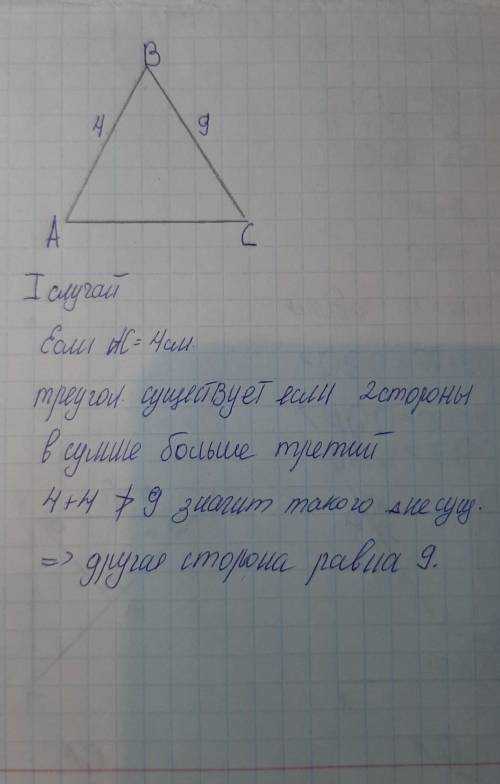 B
4 9
A C
I случай
Если AC = 4см
треугол. существует если 2 стороны
в сумме больше третий
4+4 ≯ 9 значит такого △ не сущ.
=> другая сторона равна 9.